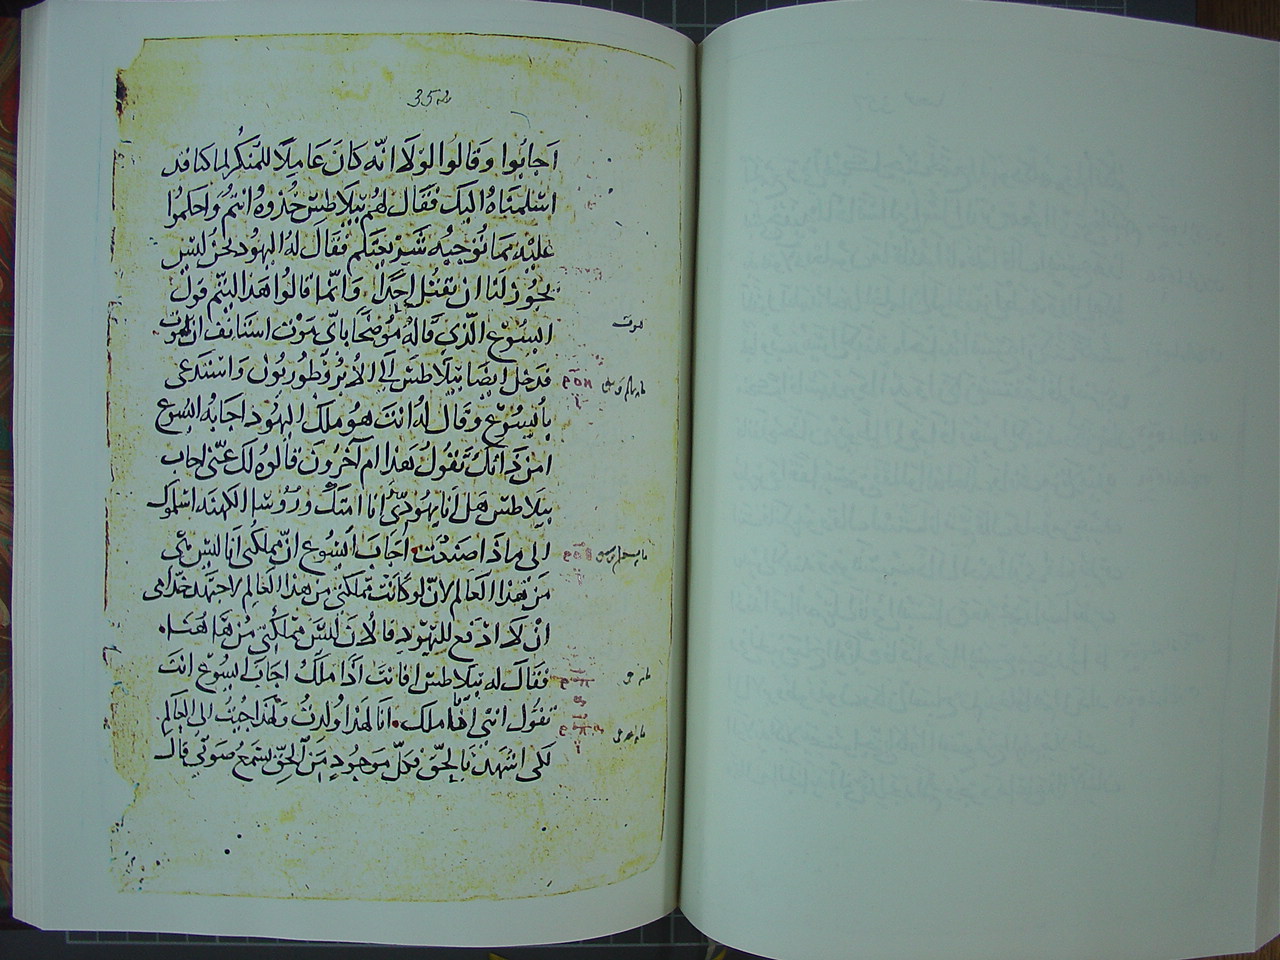 352
اجابوا وقالوا لولا انه كان عاملا للمنكر لما كنا قد
اسلمناه اليك فقال لهم بيلاطس خذوه انتم واحكموا
عليه بما توجبه شريعتكم فقال له اليهود نحن ليس
يجوز لنا ان نقتل احدا وانما قالوا هذا ليتم قول
ايسوع الذي قاله موضحا باي موت استانف ان يموت
فدخل ايضا بيلاطس الي الابروطوريون واستدعى
بايسوع وقال له انت هو ملك اليهود اجابه ايسوع
امن ذاتك تقول هذا ام آخرون قالوه لك عني اجاب
بيلاطس هل انا يهودي انا امتك ورؤسا الكهنه اسلموك
الى ماذا صنعت اجاب ايسوع ان مملكتي انا ليس هي
من هذا العالم لان لو كانت مملكتي من هذا العالم لاجتهد خدامي
ان لا ادفع لليهود فالان ليس مملكتي من ها هنا
فقال له بيلاطس افانت اذا ملك اجاب ايسوع انت
تقول انني انا ملك انا لهذا ولدت ولهذا جيت الى العالم
لكى اشهد بالحق فكل موجود من الحق يسمع صوتي قال
يموت